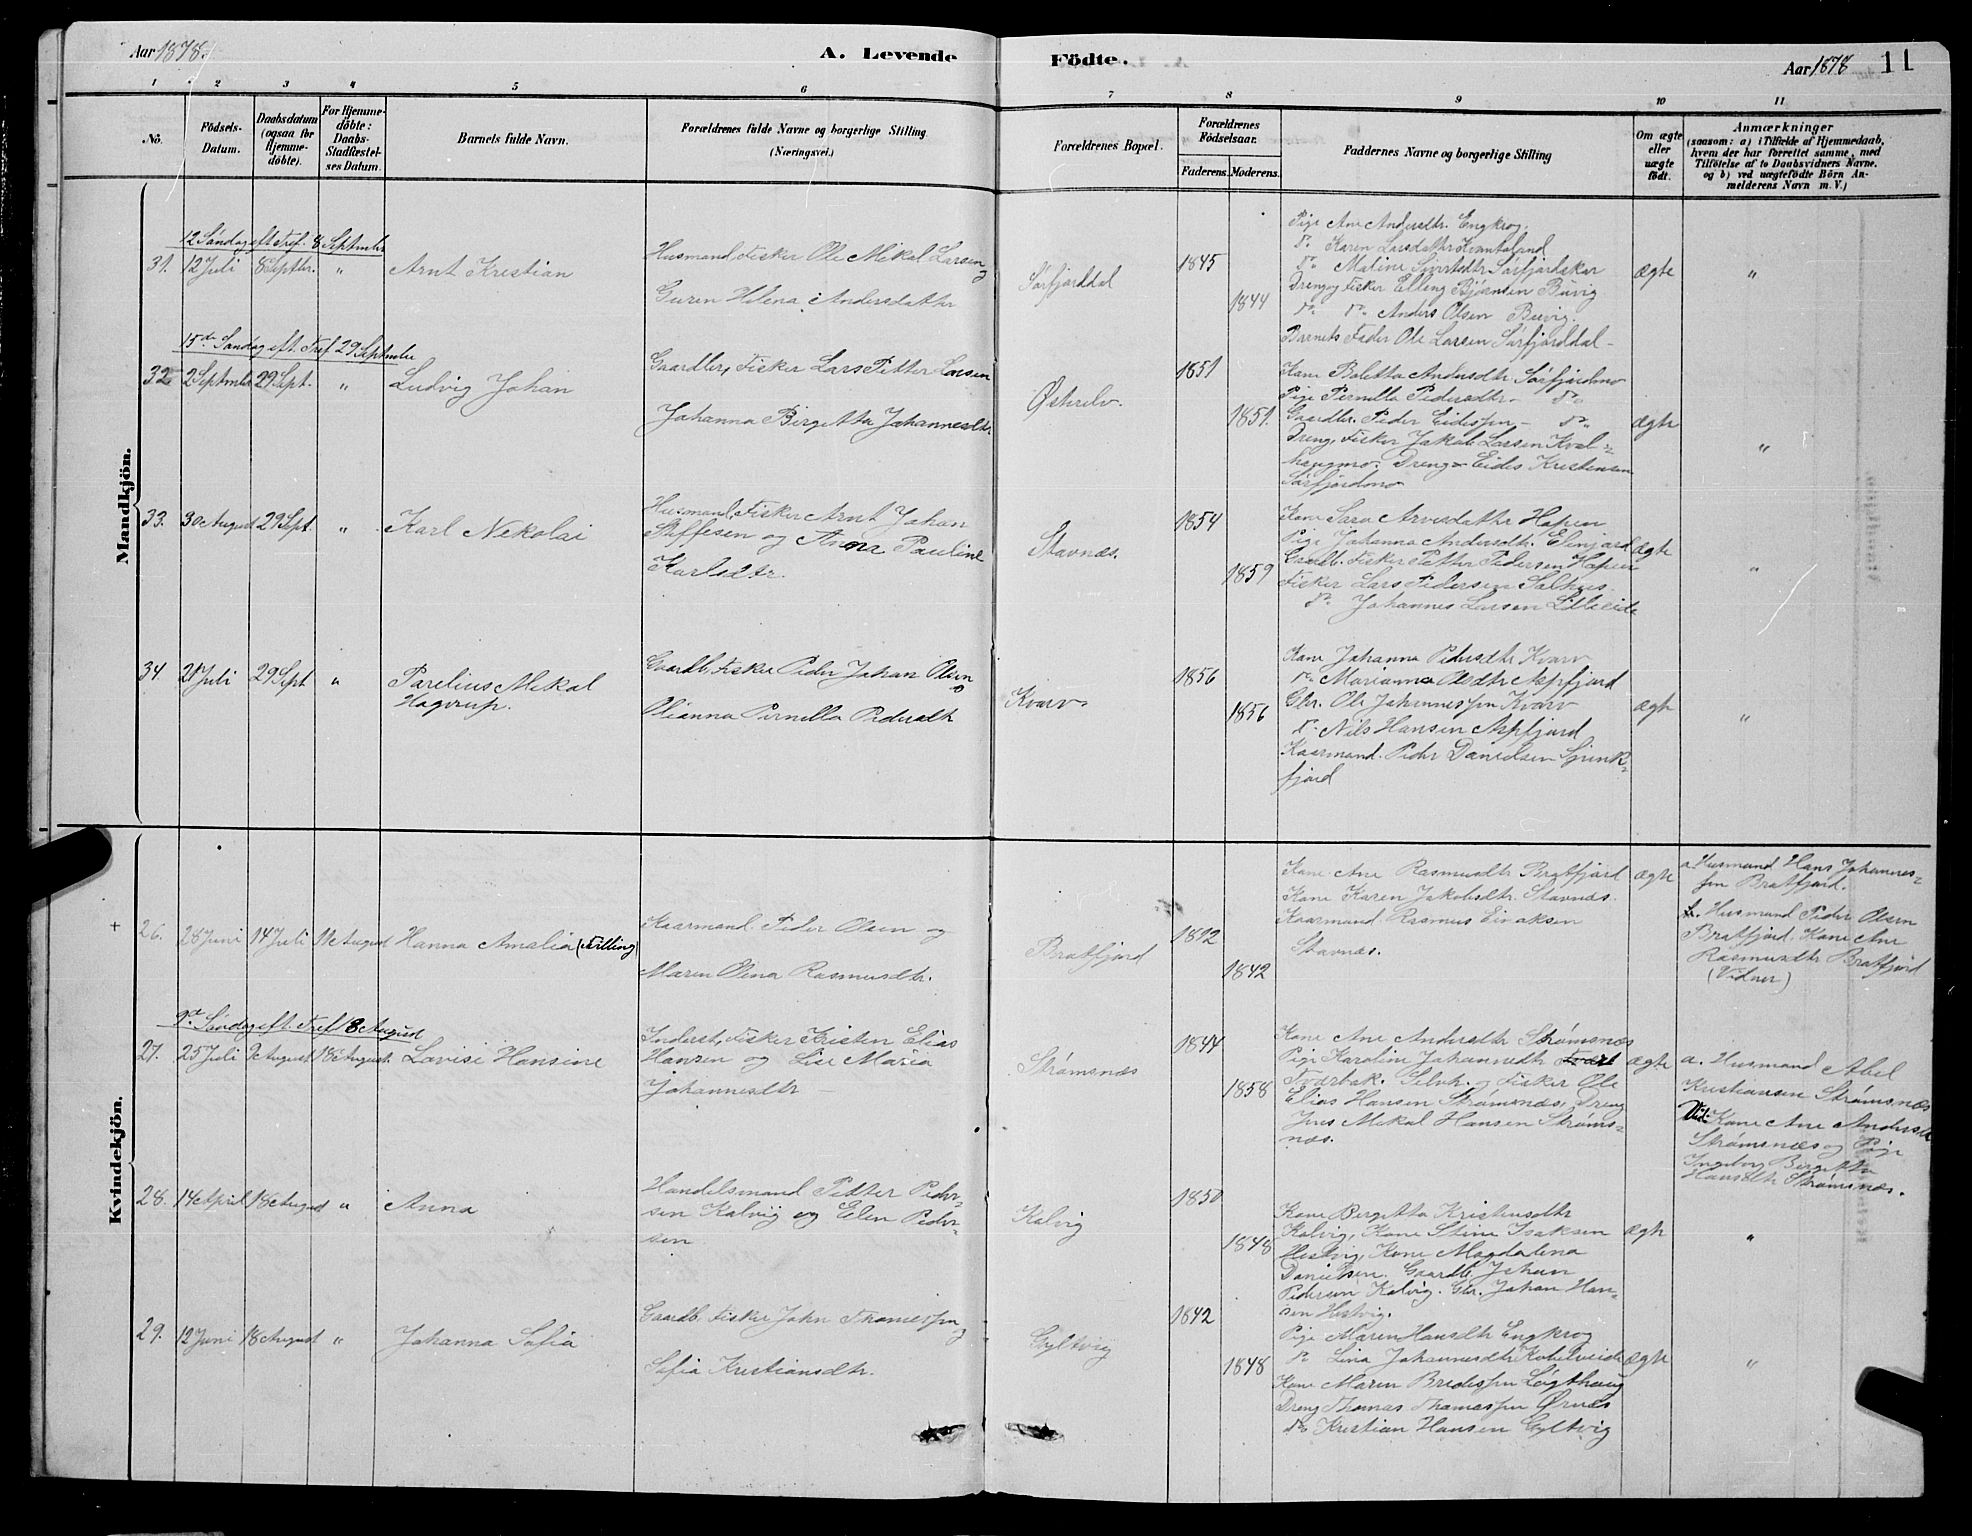 Aar 1878.
A. Levende Födte.
Aar 1878
11
1 2 3 4 5 6 7 8 9 10 11
No.
Födsels-Datum.
Daabsdatum (ogsaa for Hjemme-döbte).
For Hjemme-döbte: Daabs-Stadfæstel-ses Datum.
Barnets fulde Navn.
Forældrenes fulde Navne og borgerlige Stilling
(Næringsvei.)
Forældrenes Bopæl.
Forældrenes Födselsaar.
Faderens. Moderens.
Faddernes Navne og borgerlige Stilling
Om ægte eller uægte födt.
Anmærkninger
(saasom: a) i Tilfælde af Hjemmedaab,
hvem der har forrettet samme, med
Tilföielse af to Daabsvidners Navne.
og b) ved uægtefödte Börn An-
melderens Navn m. V.)
Mandkjön.
12 Söndag eft Tref. 8 Septmbr
31. 12 Juli 8 Septbr. " Arnt Kristian
Husmand, Fisker Ole Mikal Larsen og
Guren Helena Andersdatter
Sørfjorddal
1845
1844
Pige Ane Andersdtr. Engkrog.
do. Karen Larsdatter
do. Maline Sørfjordskar
Dreng og Fisker Elling Bjørnsen Buvig
do. do. Anders Olsen Buvig.
Barnets Fader Ole Larsen Sørfjorddal
Ægte
"
15de Søndag eft. Tref 29 Septmbr
32 2 Septmbr 29 Sept. " Ludvig Johan
Gaardbr, Fisker Lars Petter Larsen
Johanna Birgetta Johannesdtr
Østrelv.
1851
1851.
Kone Baletta Andersdtr Sørfjordmo
Pige Pernilla Pedersdtr - do
Gaardbr. Peder Eidessen - do
Dreng, Fisker Jakob Larsen Kval-
haugmo. Dreng Eides Kristensen
Sørfjordmo
Ægte
"
33. 30 August 29 Sept. " Karl Nekolai
Husmand, Fisker Arnt Johan
Steffesen og Anna Pauline
Karlsdtr.
Stavnæs.
1854
1859
Kone Sara Arnesdatter Hopen
Pige Johanna Andersdtr. Elvejord
Gaardb. Fisker Petter Pedersen Hopen
Fisker Lars Pedersen Salhus.
do. Johannes Larsen Lilleeide
Ægte
"
34 21 Juli 29 Sept " Parelius Mikal
Hagerup.
Gaardb, Fisker Peder Johan Olsen
og
Olianna Pernilla Pedersdtr
Kvarv
1856
1856
Kone Johanna Pedersdtr Kvarv
do. Marianna Olsdtr Aspfjord
Gbr. Ole Johannessen Kvarv
do. Nils Hansen Aspfjord
Kaarmand. Peder Danielsen Sjunk-
fjord
Ægte
"
Kvindekjön.
+ 26. 28 Juni 14 Juli 11 August Hanna Amalia (Tvilling)
Kaarmand. Peder Olsen og
Maren Olena Rasmusdtr.
Bratfjord
1842
Kone Ane Rasmusdtr Bratfjord
Kone Karen Jakobsdtr Stavnæs.
Kaarmand Rasmus
Stavnæs.
Ægte
a. Husmand Hans Johannes-
sen Bratfjord.
b. Husmand Peder Olsen
Bratfjord. Kone Ane
Rasmusdtr Bratfjord
(Vidner)
9de Søndag eft. Tref 18 August
27. 25 Juli 9 August 18 August. Lovise Hansine
Inderst, Fisker Kristen Elias
Hansen og Lise Maria
Johannesdtr
Strømsnæs
1844
1858
Kone Ane Andersdtr Strømsnæs
Pige Karoline Johannesdtr
Tværbak. Selvh. og Fisker Ole
Elias Hansen Strømsnæs, Dreng
Jens Mekal Hansen Strøms-
næs.
Ægte
a. Husmand Abel
Kristiansen Strømsnæs
Vid: Kone Ane Andersd
Strømsnæs og Pige
Ingeborg Birgetta
Hansdtr Strømsnæs.
28. 14 April 18 August " Anna
Handelsmand Petter Peder-
sen Kalvig og Elen Peder-
sen
Kalvig
1850
1848
Kone Bergetta Kristensdtr
Kalvig, Kone Stina Isaksen
Hestvig, Kone Magdalena
Danielsen. Gaardb. Johan
Pedersen Kalvig. Gbr. Johan Han-
sen Hestvig.
Ægte
"
29. 12 Juni 18 August " Johanna Sofia
Gaardb. Fisker John Thomessen
og
Sofia Kristiansdtr.
Gyltvig
1842
1848
Pige Maren Hansdtr Engkrog
do Lina Johannesdtr Kobelveide
Kone Maren Bredessen Løgthaug
Dreng Thomas Thomassen Ørnes
do Kristian Hansen Gyltvig
Ægte
"